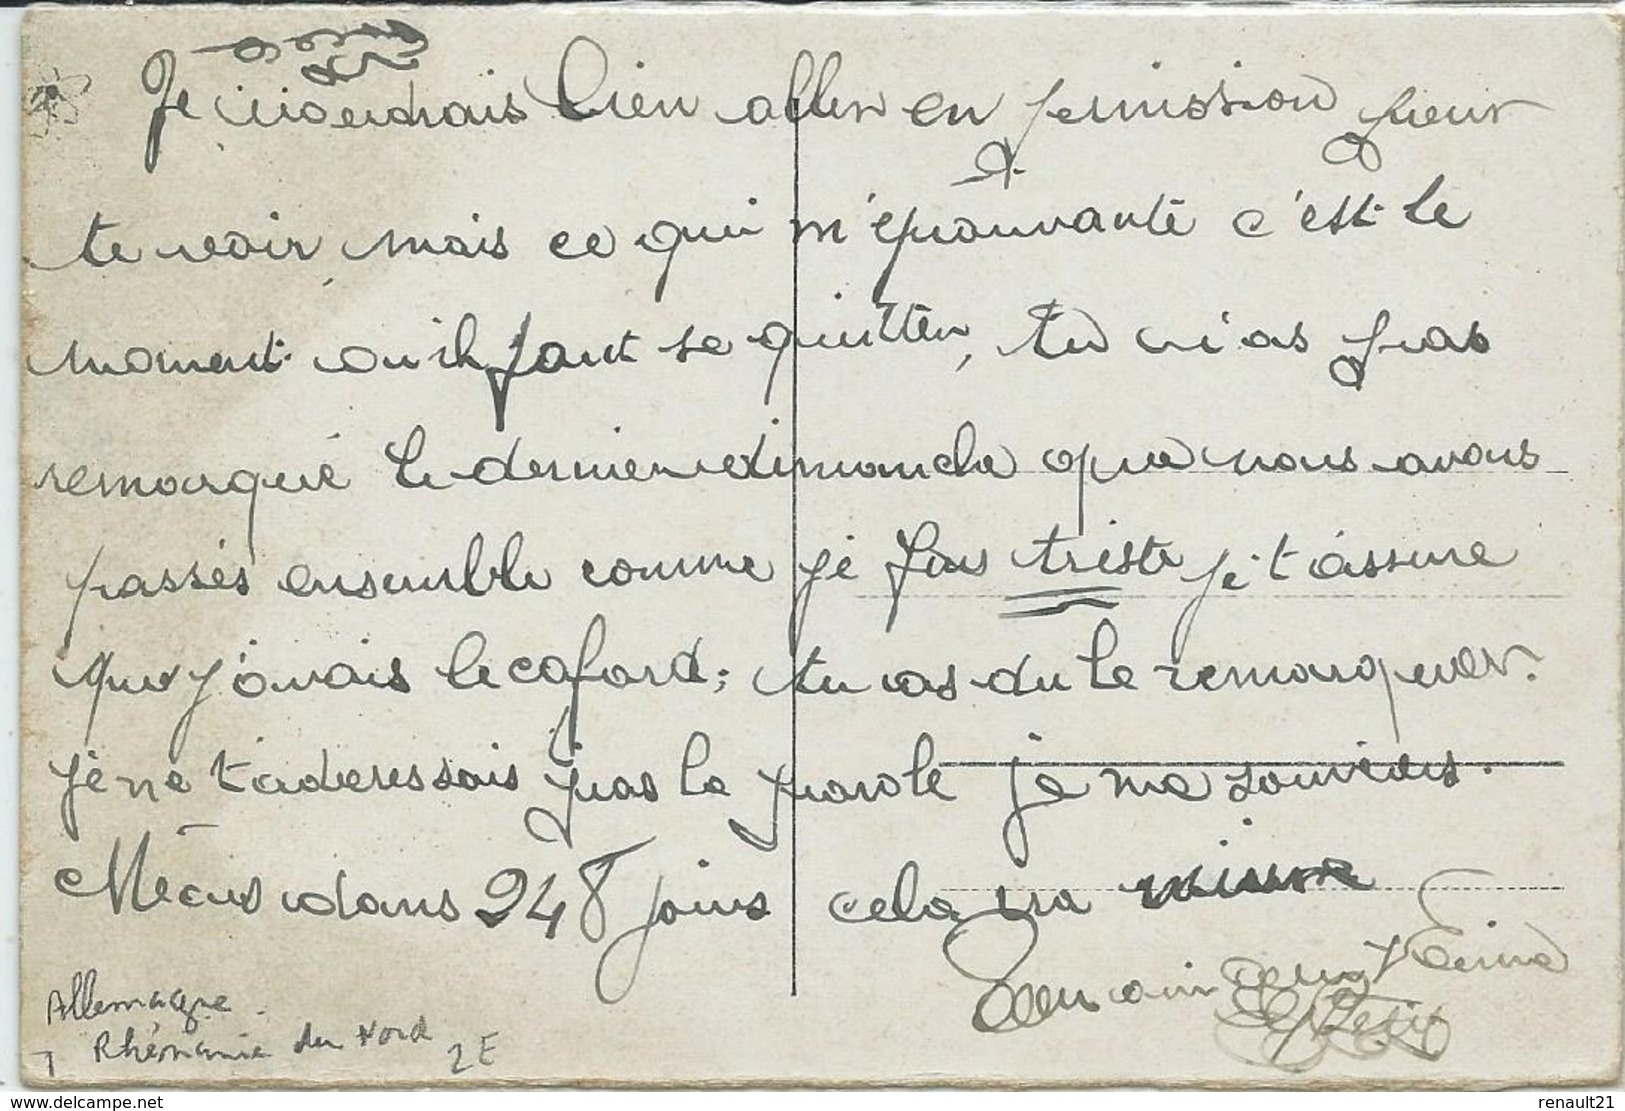 Je voudrais bien aller en permission pour
te voir mais ce qui m'épouvante c'est le
moment ou il faut se quitter, tu n'as pas
remarqué le dernier dimanche que nous avons
passés ensemble comme je fus triste je t'assure
que j'avais le cafard; tu as du le remarquer.
je ne t'adressais pas la parole je me souviens.
Mécus dans 248 jours cela ira mieux
Allemagne
Rhénanie du Nord
2E
www.delcampe.net
renault21